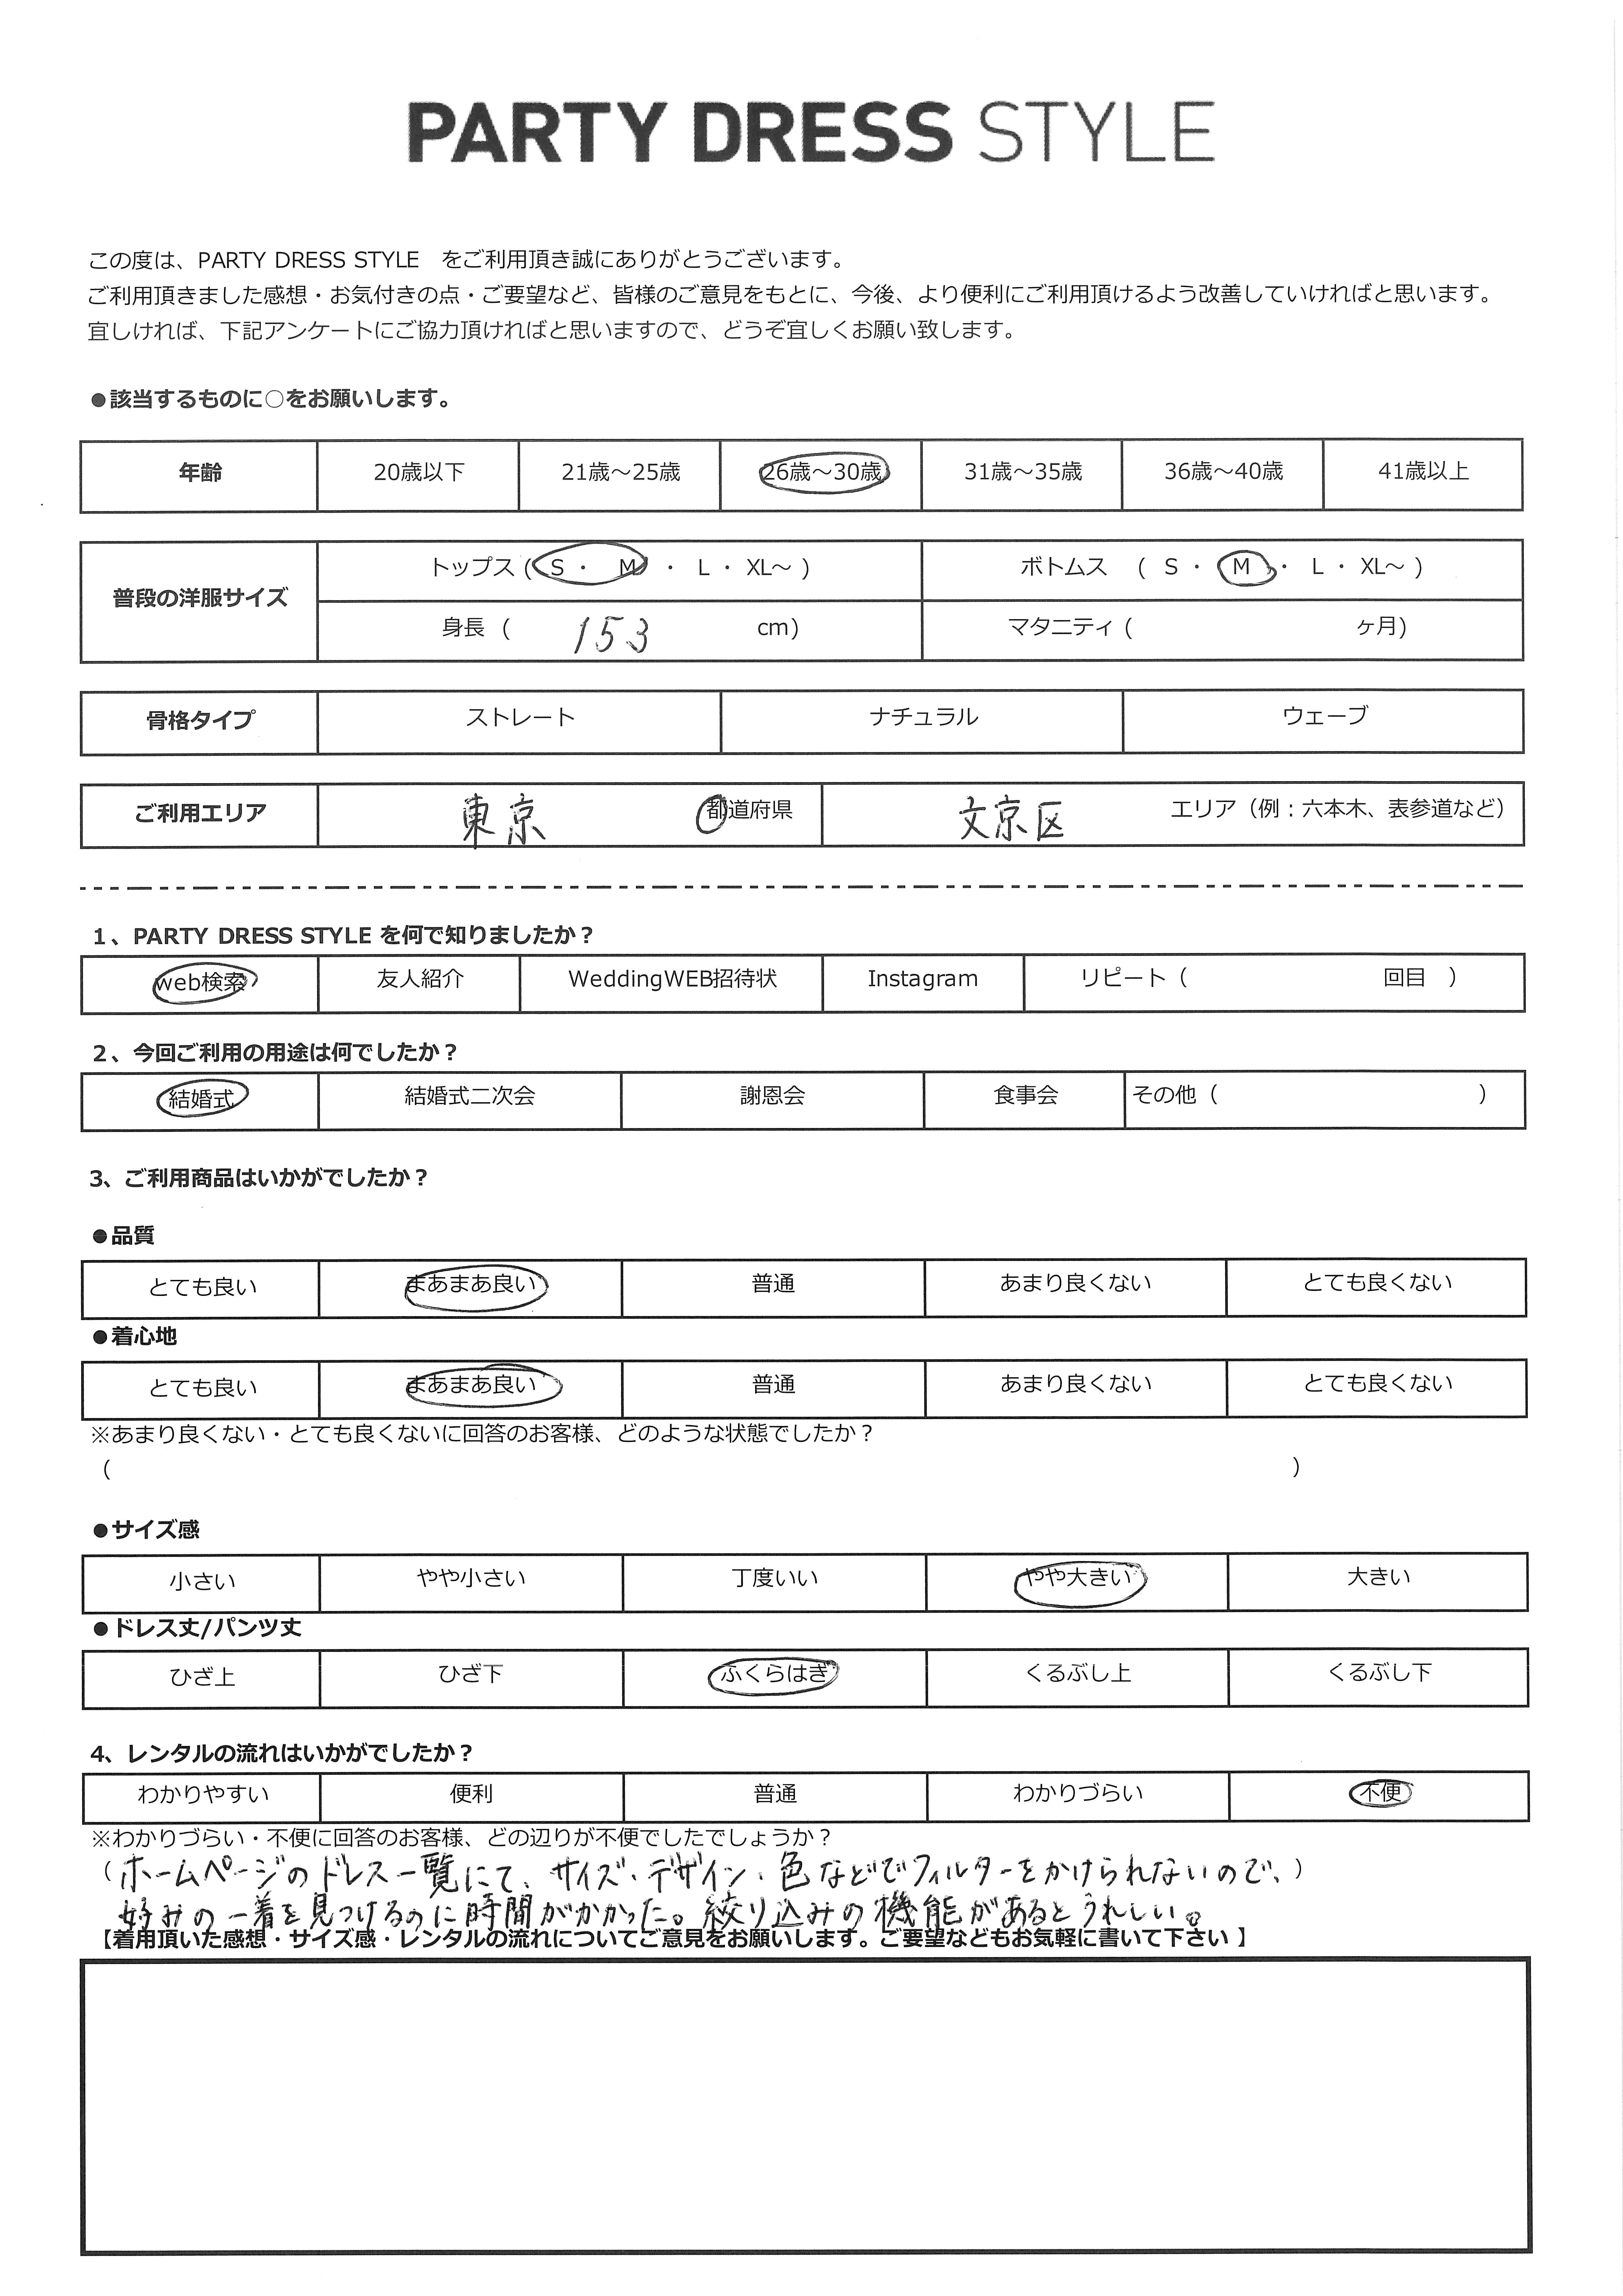 PARTY DRESS STYLE
この度は、PARTY DRESS STYLE　をご利用頂き誠にありがとうございます。
ご利用頂きました感想・お気付きの点・ご要望など、皆様のご意見をもとに、今後、より便利にご利用頂けるよう改善していければと思います。
宜しければ、下記アンケートにご協力頂ければと思いますので、どうぞ宜しくお願い致します。
●該当するものに○をお願いします。
年齢 20歳以下 21歳～25歳 26歳～30歳 31歳～35歳 36歳～40歳 41歳以上
普段の洋服サイズ トップス ( S ・ M ・ L ・ XL～ ) ボトムス ( S ・ M ・ L ・ XL～ )
身長 ( 153 cm) マタニティ ( ヶ月)
骨格タイプ ストレート ナチュラル ウェーブ
ご利用エリア 東京 都道府県 文京区 エリア（例：六本木、表参道など）
1、PARTY DRESS STYLE を何で知りましたか？
web検索 友人紹介 WeddingWEB招待状 Instagram リピート（ 回目 ）
2、今回ご利用の用途は何でしたか？
結婚式 結婚式二次会 謝恩会 食事会 その他（ ）
3、ご利用商品はいかがでしたか？
●品質
とても良い まあまあ良い 普通 あまり良くない とても良くない
●着心地
とても良い まあまあ良い 普通 あまり良くない とても良くない
※あまり良くない・とても良くないに回答のお客様、どのような状態でしたか？
（ ）
●サイズ感
小さい やや小さい 丁度いい やや大きい 大きい
●ドレス丈/パンツ丈
ひざ上 ひざ下 ふくらはぎ くるぶし上 くるぶし下
4、レンタルの流れはいかがでしたか？
わかりやすい 便利 普通 わかりづらい 不便
※わかりづらい・不便に回答のお客様、どの辺りが不便でしたでしょうか？
（ホームページのドレス一覧にて、サイズ・デザイン・色などでフィルターをかけられないので、）
好みの一着を見つけるのに時間がかかった。絞り込みの機能があるとうれしい。
【着用頂いた感想・サイズ感・レンタルの流れについてご意見をお願いします。ご要望などもお気軽に書いて下さい 】